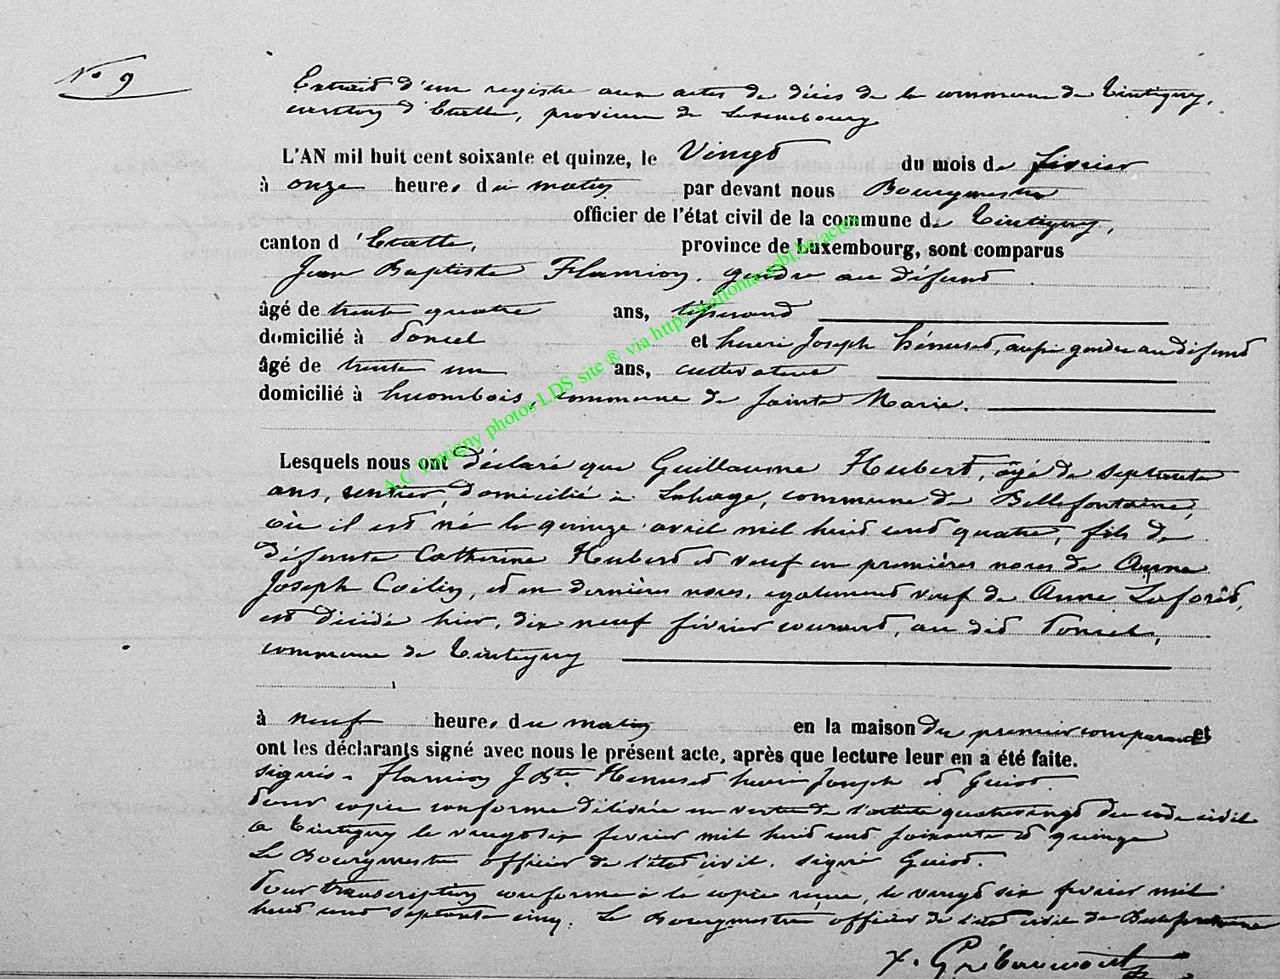 N° 9
Extrait d'un registre aux actes de décès de la commune de Tintigny,
canton d'Etalle, province de Luxembourg
L'AN mil huit cent soixante et quinze, le Vingt du mois de février
à onze heures du matin par devant nous Bourgmestre
officier de l'état civil de la commune de Tintigny,
canton d'Etalle, province de Luxembourg, sont comparus
Jean Baptiste Flamion, gendre au défunt
âgé de trente quatre ans, tisserand
domicilié à Poncel et henri Joseph Hénuset, aussi gendre au défunt
âgé de trente un ans, cultivateur
domicilié à huombois, commune de Sainte Marie.
Lesquels nous ont déclaré que Guillaume Hubert, âgé de septante
ans, rentier, domicilié à Lahage, commune de Bellefontaine,
où il est né le quinze avril mil huit cent quatre, fils de
défunte Catherine Hubert et veuf en premières noces de Anne
Joseph Collin, et en dernières noces, egalement veuf de Anne Laforêt,
est décédé hier, dix neuf février courant, au dit Poncel,
commune de Tintigny
à neuf heures du matin en la maison du premier comparant et
ont les déclarants signé avec nous le présent acte, après que lecture leur en a été faite.
signés - flamion J Bte Henuset henri Joseph et Guiot.
Pour copie conforme délivrée en vertu de l'article quatrevingt du code civil
a Tintigny le vingt six février mil huit cent soixante et quinze
Le Bourgmestre officier de l'état civil. signé Guiot.
Pour transcription conforme à la copie reçue, le vingt six février mil
huit cent septante cinq. Le Bourgmestre officier de l'état civil de Bellefontaine
A.C Tintigny photos LDS site ® via http://wallonia-asbl.be/actes